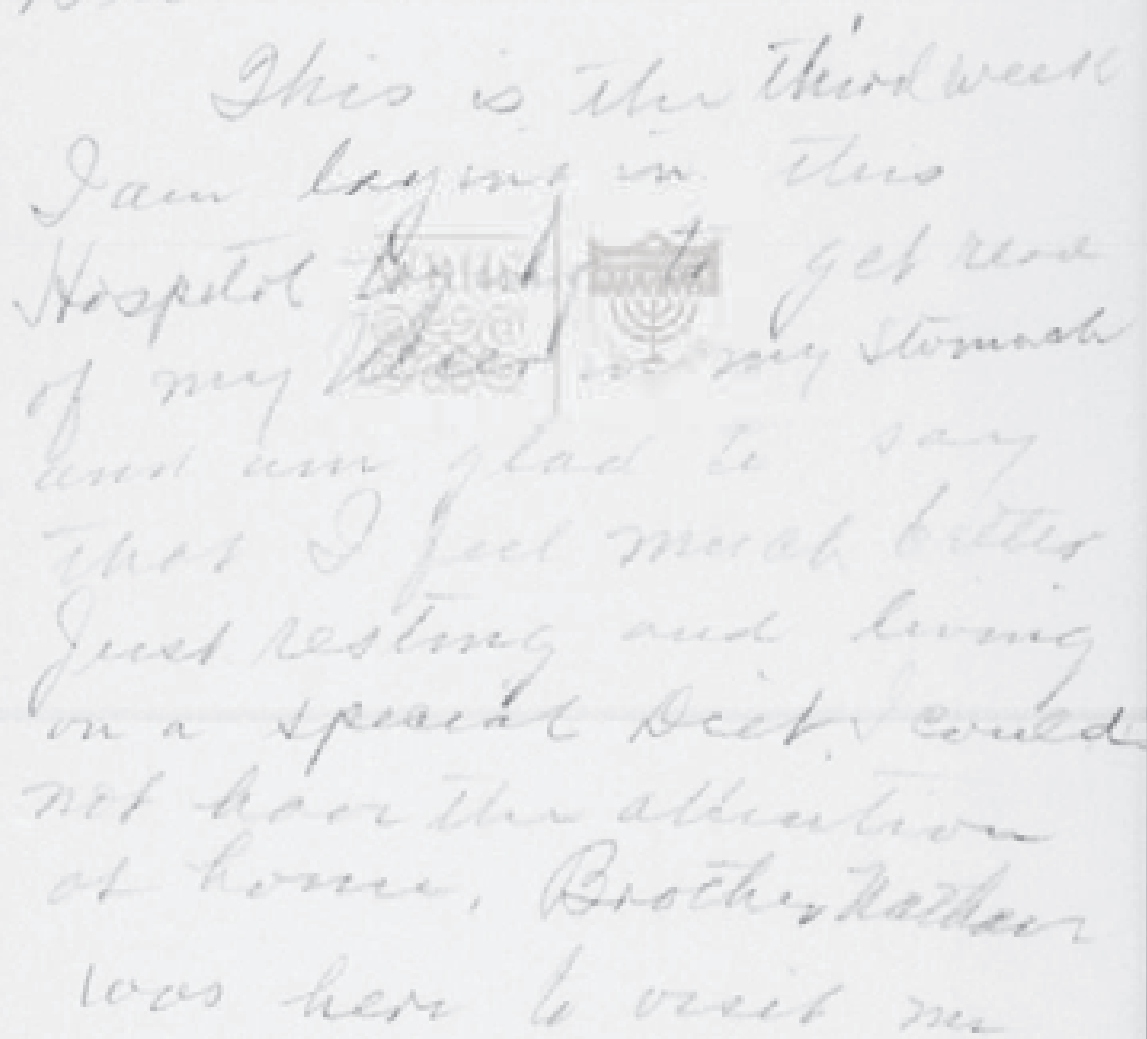 This is the third week
I am laying in this
Hospitol trying to get read
of my Ulcer in my Stomach
and am glad to say
that I feel much better
Just resting and living
on a special Diet. I could
not have the attention
at home. Brother Nathan
was here to visit me